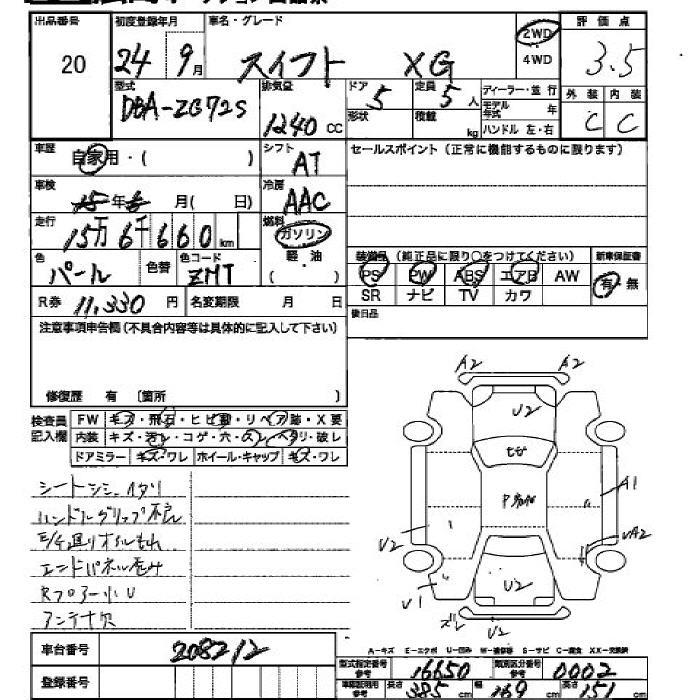 出品番号 初度登録年月 車名・グレード 評価点
20 24 9月 スイフト XG 2WD 4WD 3.5
型式 排気量 ドア 5 定員 5人 ディーラー・並行 外装 内装
DBA-ZC72S 1240 CC 形状 積載 kg モデル年式 年 C C
ハンドル 左・右
車歴 自家用・( ) シフト AT セールスポイント (正常に機能するものに限ります)
車検 年 月( 日) 冷房 AAC
走行 15万6千660km 燃料 ガソリン 軽油 ( )
色 パール 色替 色コード ZMT
装備品 (純正品に限り○をつけてください) 新車保証書
PS PW ABS エアB AW 有・無
SR ナビ TV カワ
R券 11,330 円 名変期限 月 日
後日品
注意事項申告欄(不具合内容等は具体的に記入して下さい)
修復歴 有 〔箇所 〕
検査員記入欄 FW キズ・飛石・ヒビ・リペア跡・X要
内装 キズ・汚レ・コゲ・穴・スレ・ヘタリ・破レ
ドアミラー キズ・ワレ ホイール・キャップ キズ・ワレ
ハンドルグリップ不良
エンドパネル歪み
アンテナ欠
A2 A2
U2
ヒビ
A1
U2 UA2
U1 U2
ズレ U2
A-キズ E-エクボ U-凹み W-補修跡 S-サビ C-腐食 XX-交換済
車台番号 208212
登録番号
型式指定番号 参考 16650 類別区分番号 参考 0002
長さ 385 cm 幅 169 cm 高さ 151 cm